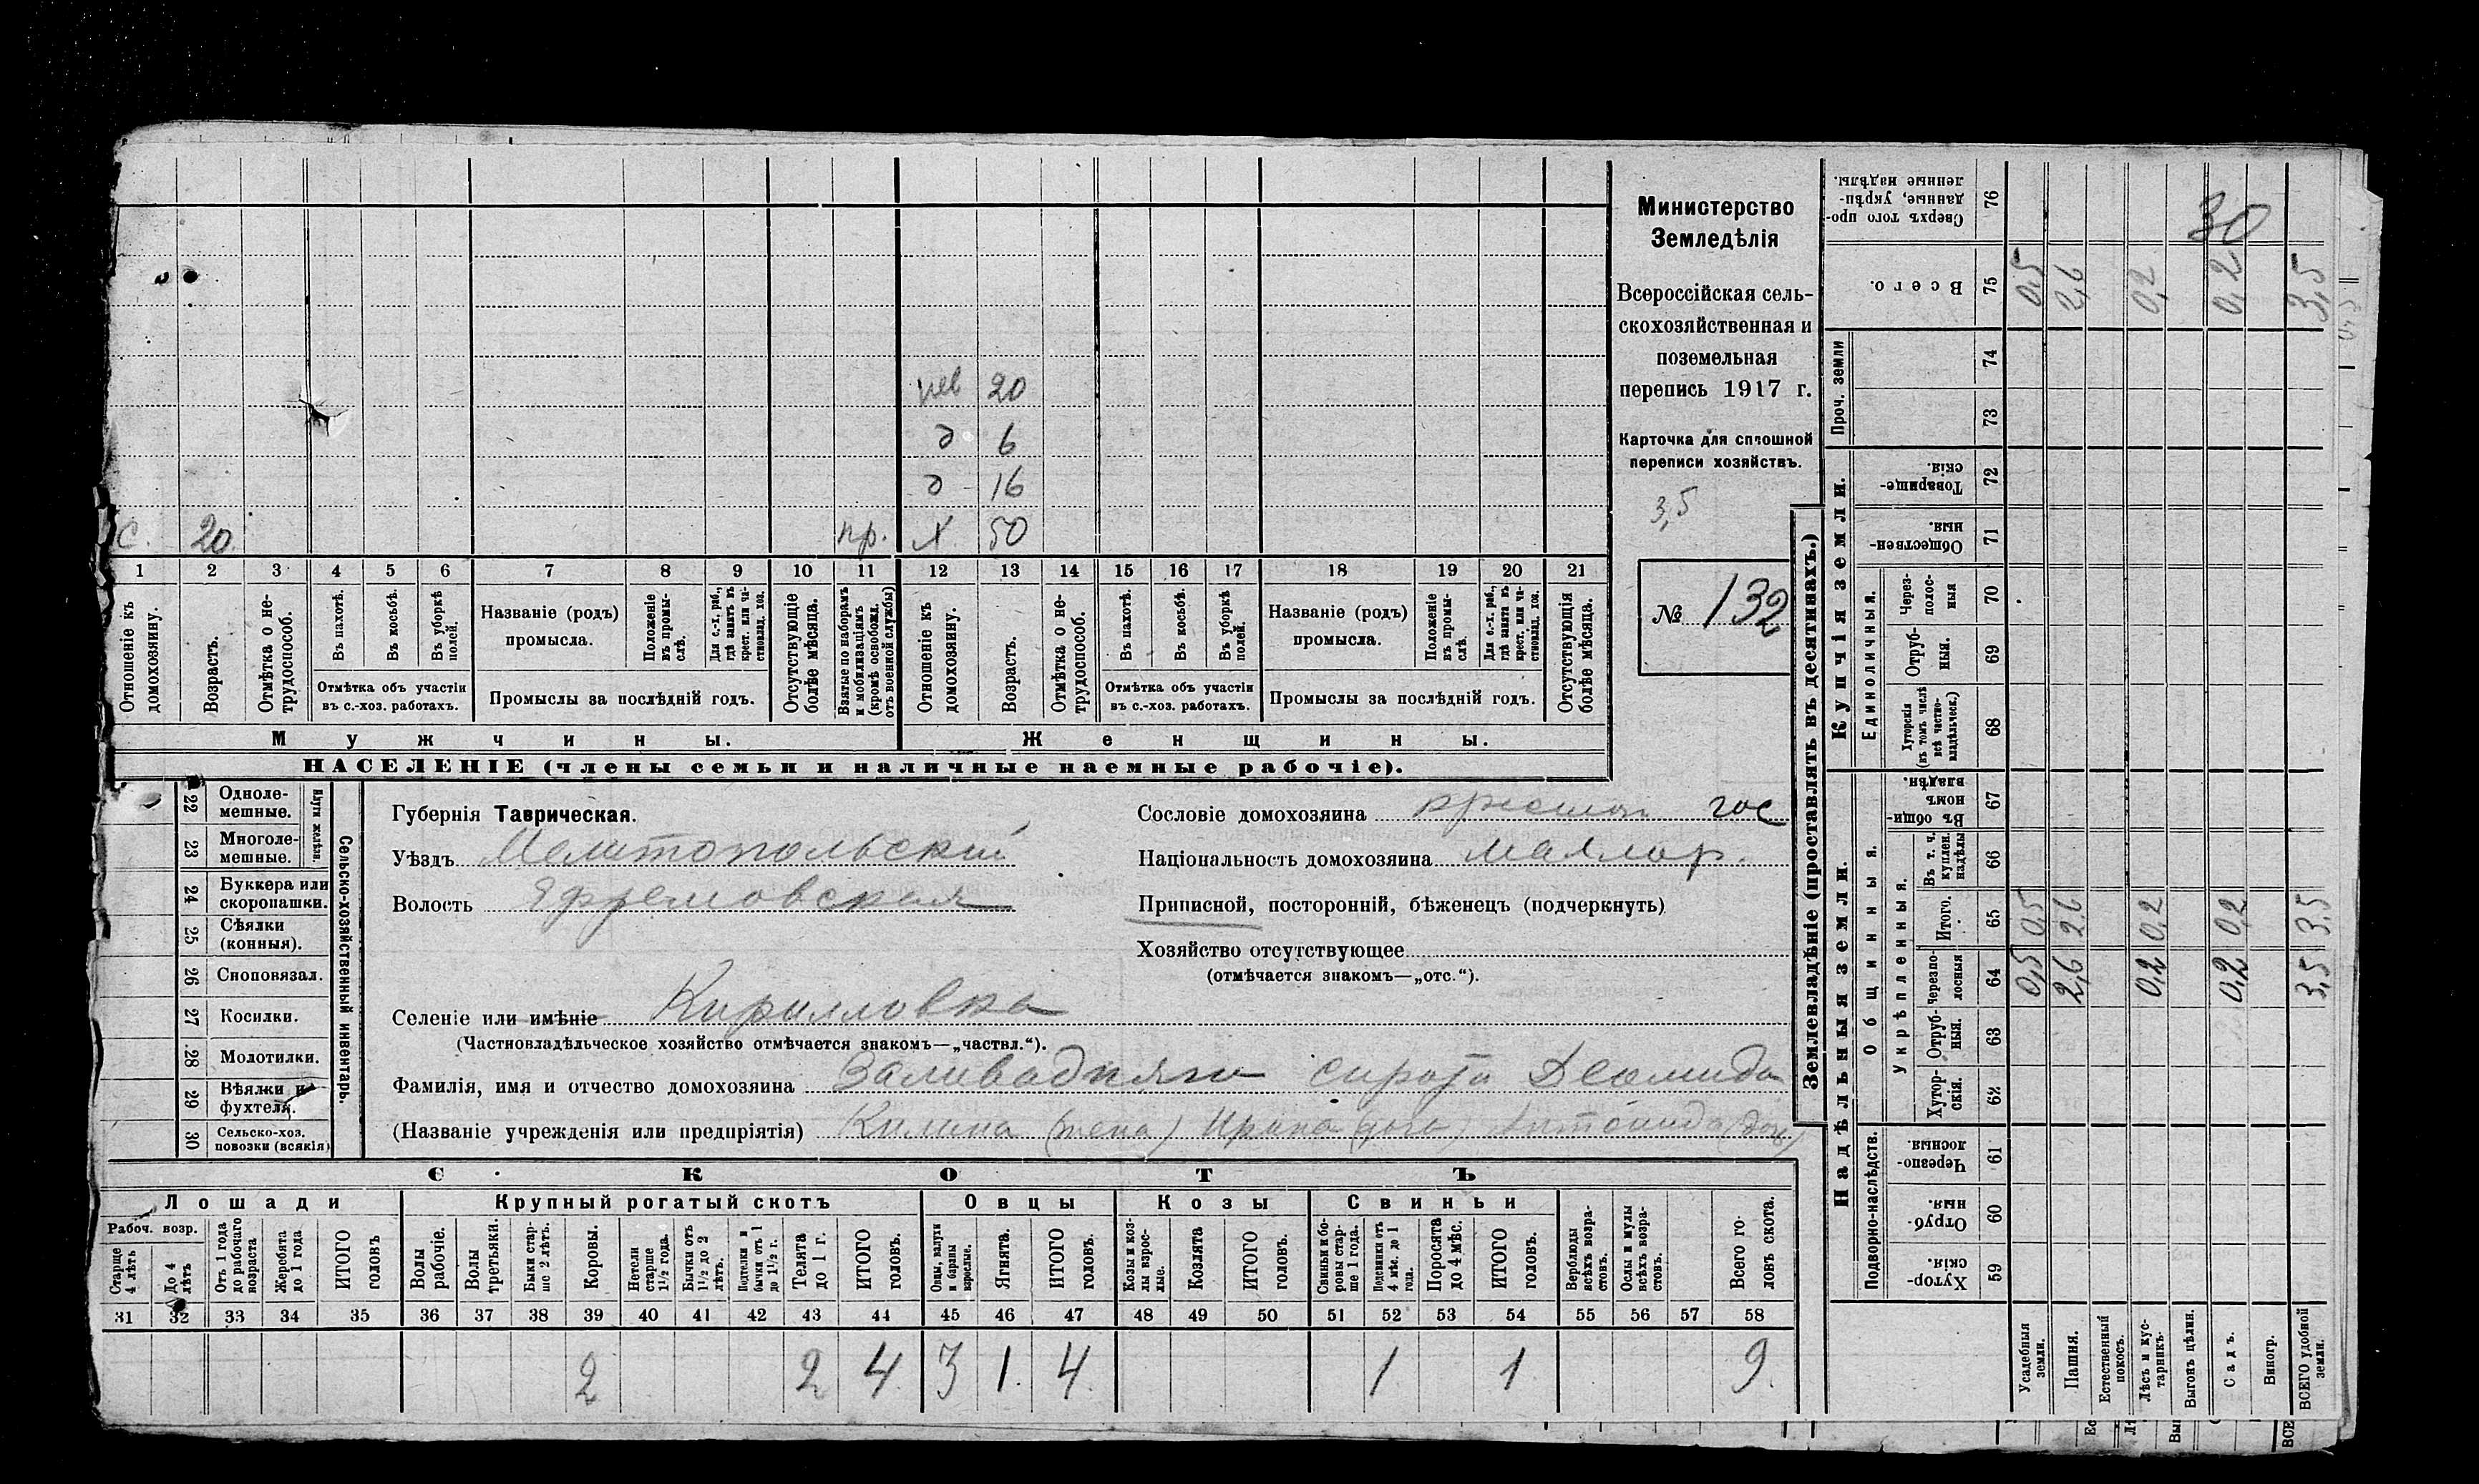 30
20
6
16
с. 20 пр. х 50
1 2 3 4 5 6 7 8 9 10 11 12 13 14 15 16 17 18 19 20 21
Отношеніе къ домохозяину.
Возрастъ.
Отмѣтка о не-
трудоспособ.
Въ пахотѣ.
Въ косьбѣ.
Въ уборкѣ полей.
Отмѣтка объ участіи
въ с.-хоз. работахъ.
Названіе (родъ)
промысла.
Положеніе
въ промы-
слѣ.
Для с.-х. раб.,
гдѣ занятъ въ
крест. или ча-
стновлад. хоз.
Промыслы за послѣдній годъ.
Отсутствующіе
болѣе мѣсяца.
Взятые по наборамъ
и мобилизаціямъ
(кромѣ освобожд.
отъ военной службы)
Отношеніе къ
домохозяину.
Возрастъ.
Отмѣтка о не-
трудоспособ.
Въ пахотѣ.
Въ косьбѣ.
Въ уборкѣ
полей.
Отмѣтка объ участіи
въ с.-хоз. работахъ.
Названіе (родъ)
промысла.
Положеніе
въ промы-
слѣ.
Для с.-х. раб.,
гдѣ занятъ въ
крест. или ча-
стновлад. хоз.
Промыслы за послѣдній годъ.
Отсутствующія
болѣе мѣсяца.
Мужчины.
Женщины.
НАСЕЛЕНІЕ (члены семьи и наличные наемные рабочіе).
Министерство
Земледѣлія
Всероссійская сель-
скохозяйственная и
поземельная
перепись 1917 г.
Карточка для сплошной
переписи хозяйствъ.
3,5
№ 132
22 Одноле-
мешные.
23 Многоле-
мешные.
Плуги желѣзн.
24 Буккера или
скоропашки.
25 Сѣялки
(конныя).
26 Сноповязал.
27 Косилки.
28 Молотилки.
29 Вѣялки и
фухтеля.
30 Сельско-хоз.
повозки (всякія)
Сельско-хозяйственный инвентарь.
Губернія Таврическая.
Уѣздъ Мелитопольскій
Волость Ефремовская
Селеніе или имѣніе Кирилловка
(Частновладѣльческое хозяйство отмѣчается знакомъ—„частвл.“).
Сословіе домохозяина гос
Національность домохозяина малор.
Приписной, посторонній, бѣженецъ (подчеркнуть)
Хозяйство отсутствующее
(отмѣчается знакомъ—„отс.“).
Фамилія, имя и отчество домохозяина сирота
(Названіе учрежденія или предпріятія) Килина (жена) (дочь) (дочь)
СКОТЪ
Лошади
Крупный рогатый скотъ
Овцы
Козы
Свиньи
Рабоч. возр.
Старше
4 лѣтъ
До 4
лѣтъ
Отъ 1 года
до рабочаго
возраста
Жеребята
до 1 года
ИТОГО
головъ
Волы
рабочіе.
Волы
третьяки.
Быки стар-
ше 2 лѣтъ.
Коровы.
Нетели
старше
1½ года.
Бычки отъ
1½ до 2
лѣтъ.
бычки отъ 1
до 1½ г.
Телята
до 1 г.
ИТОГО
головъ.
Овцы, валухи
и бараны
взрослые.
Ягнята.
ИТОГО
головъ.
Козы и коз-
лы взрос-
лые.
Козлята
ИТОГО
головъ.
Свиньи и бо-
ровы стар-
ше 1 года.
Подсвинки отъ
4 мѣс. до 1
года.
Поросята
до 4 мѣс.
ИТОГО
головъ.
Верблюды
всѣхъ возра-
стовъ.
Ослы и мулы
всѣхъ возра-
стовъ.
Всего го-
ловъ скота.
31 32 33 34 35 36 37 38 39 40 41 42 43 44 45 46 47 48 49 50 51 52 53 54 55 56 57 58
2 2 4 3 1. 4. 1 1 9.
Землевладѣніе (проставлять въ десятинахъ.)
Купчія земли.
Надѣльныя земли.
Сверхъ того про-
данные, укрѣп-
ленные надѣлы.
76
Всего.
75 0,5 2,6 0,2 0,2 3,5
Проч. земли
74
73
Товарище-
скія.
72
Обществен-
ныя.
71
Единоличныя.
Через-
полос-
ныя
70
Отруб-
ныя.
69
Хуторскія
(въ томъ числѣ
всѣ частно-
владѣльческ.)
68
Общинныя.
Въ общи-
нномъ
владѣн.
67
Укрѣпленныя.
Въ т. ч.
куплен.
надѣлы
66
Итого.
65 0,5 2,6 0,2 0,2 3,5
Черезпо-
лосныя
64 0,5 2,6 0,2 0,2 3,5
Отруб-
ныя.
63
Хутор-
скія.
62
Подворно-наслѣдств.
Черезпо-
лосныя.
61
Отруб-
ныя.
60
Хутор-
скія.
59
Усадебныя
земли.
Пашня.
Естественный
покосъ.
Лѣсъ и кус-
тарникъ.
Выгонъ цѣлин.
Садъ.
Виногр.
ВСЕГО удобной
земли.